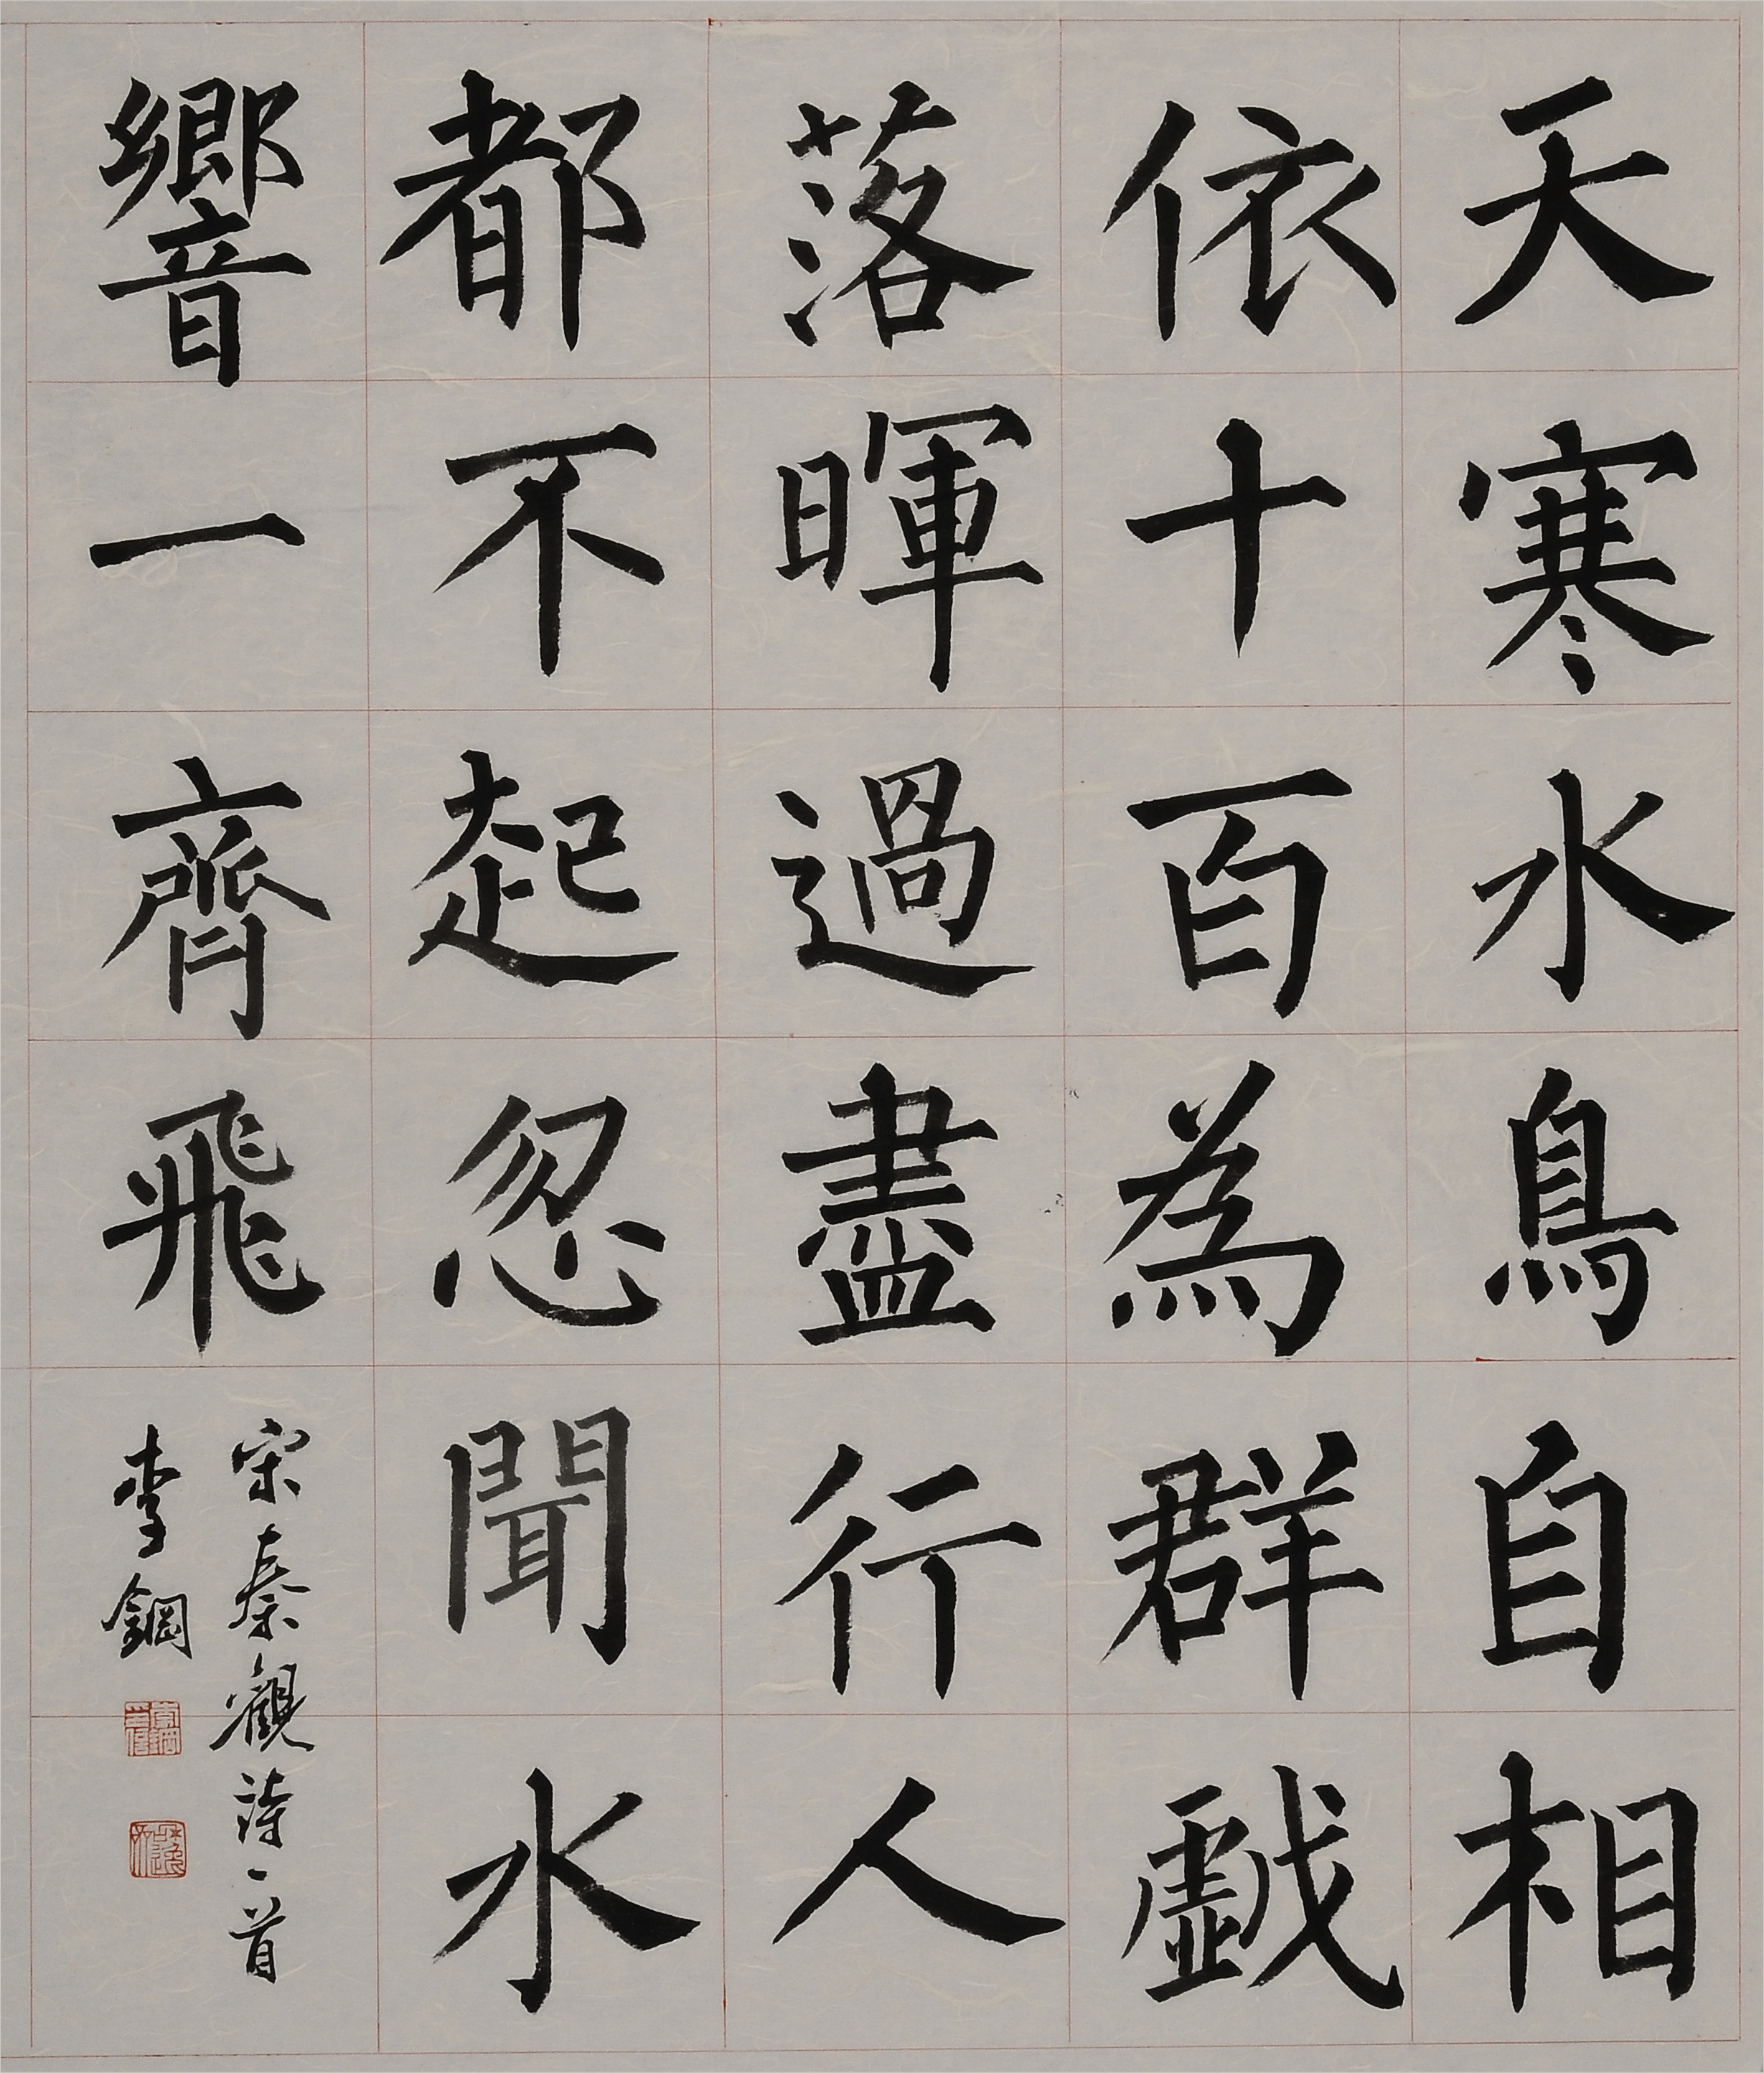 天寒水鳥自相
依十百為群戯
落暉過盡行人
都不起忽聞水
響一齊飛
宋秦觀詩一首
李鋼